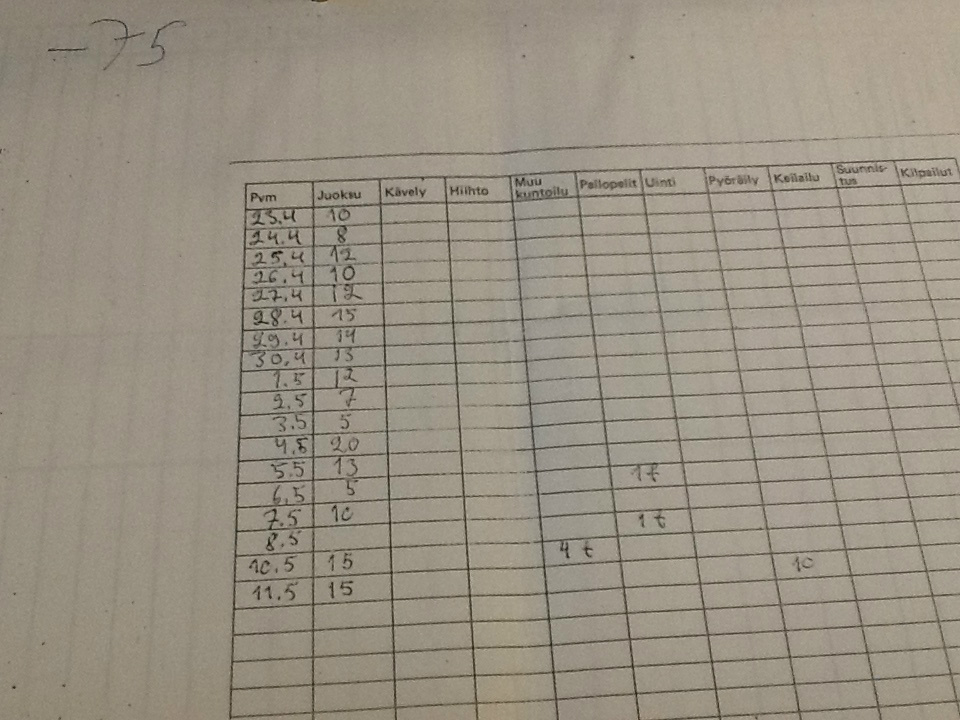 -75
Pvm Juoksu Kävely Hiihto Muu kuntoilu Pallopelit Uinti Pyöräily Keilailu Suunnis-tus Kilpailut
23.4 10
24.4 8
25.4 12
26.4 10
27.4 12
28.4 15
29.4 14
30.4 13
1.5 12
2.5 7
3.5 5
4.5 20
5.5 13 1t
6.5 5
7.5 10 1t
8.5 4 t
10.5 15 10
11.5 15